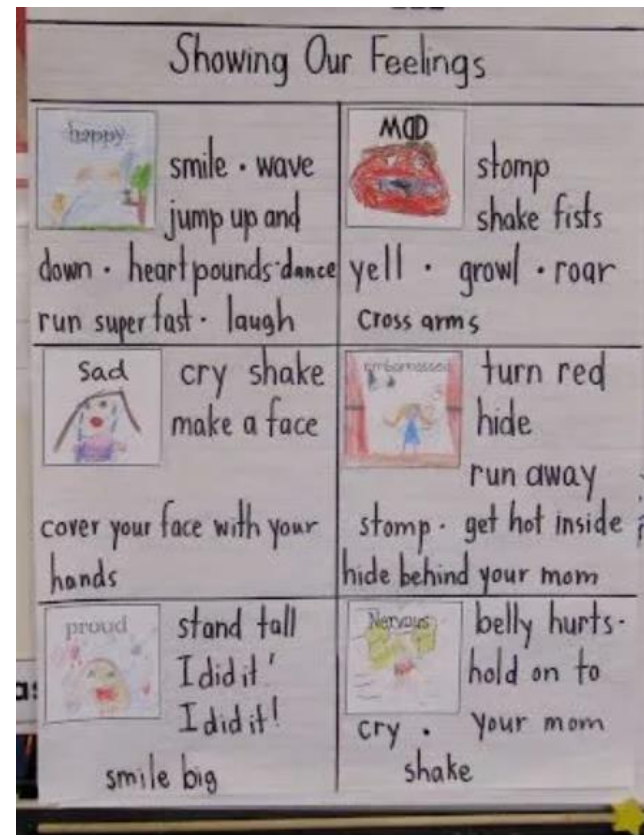 Showing Our Feelings
happy
smile · wave
jump up and
down · heart pounds · dance
run super fast · laugh
MAD
stomp
shake fists
yell · growl · roar
cross arms
Sad
cry shake
make a face
cover your face with your
hands
embarrassed
turn red
hide
run away
stomp · get hot inside
hide behind your mom
proud
stand tall
I did it!
I did it!
smile big
Nervous
belly hurts ·
hold on to
cry · your mom
shake